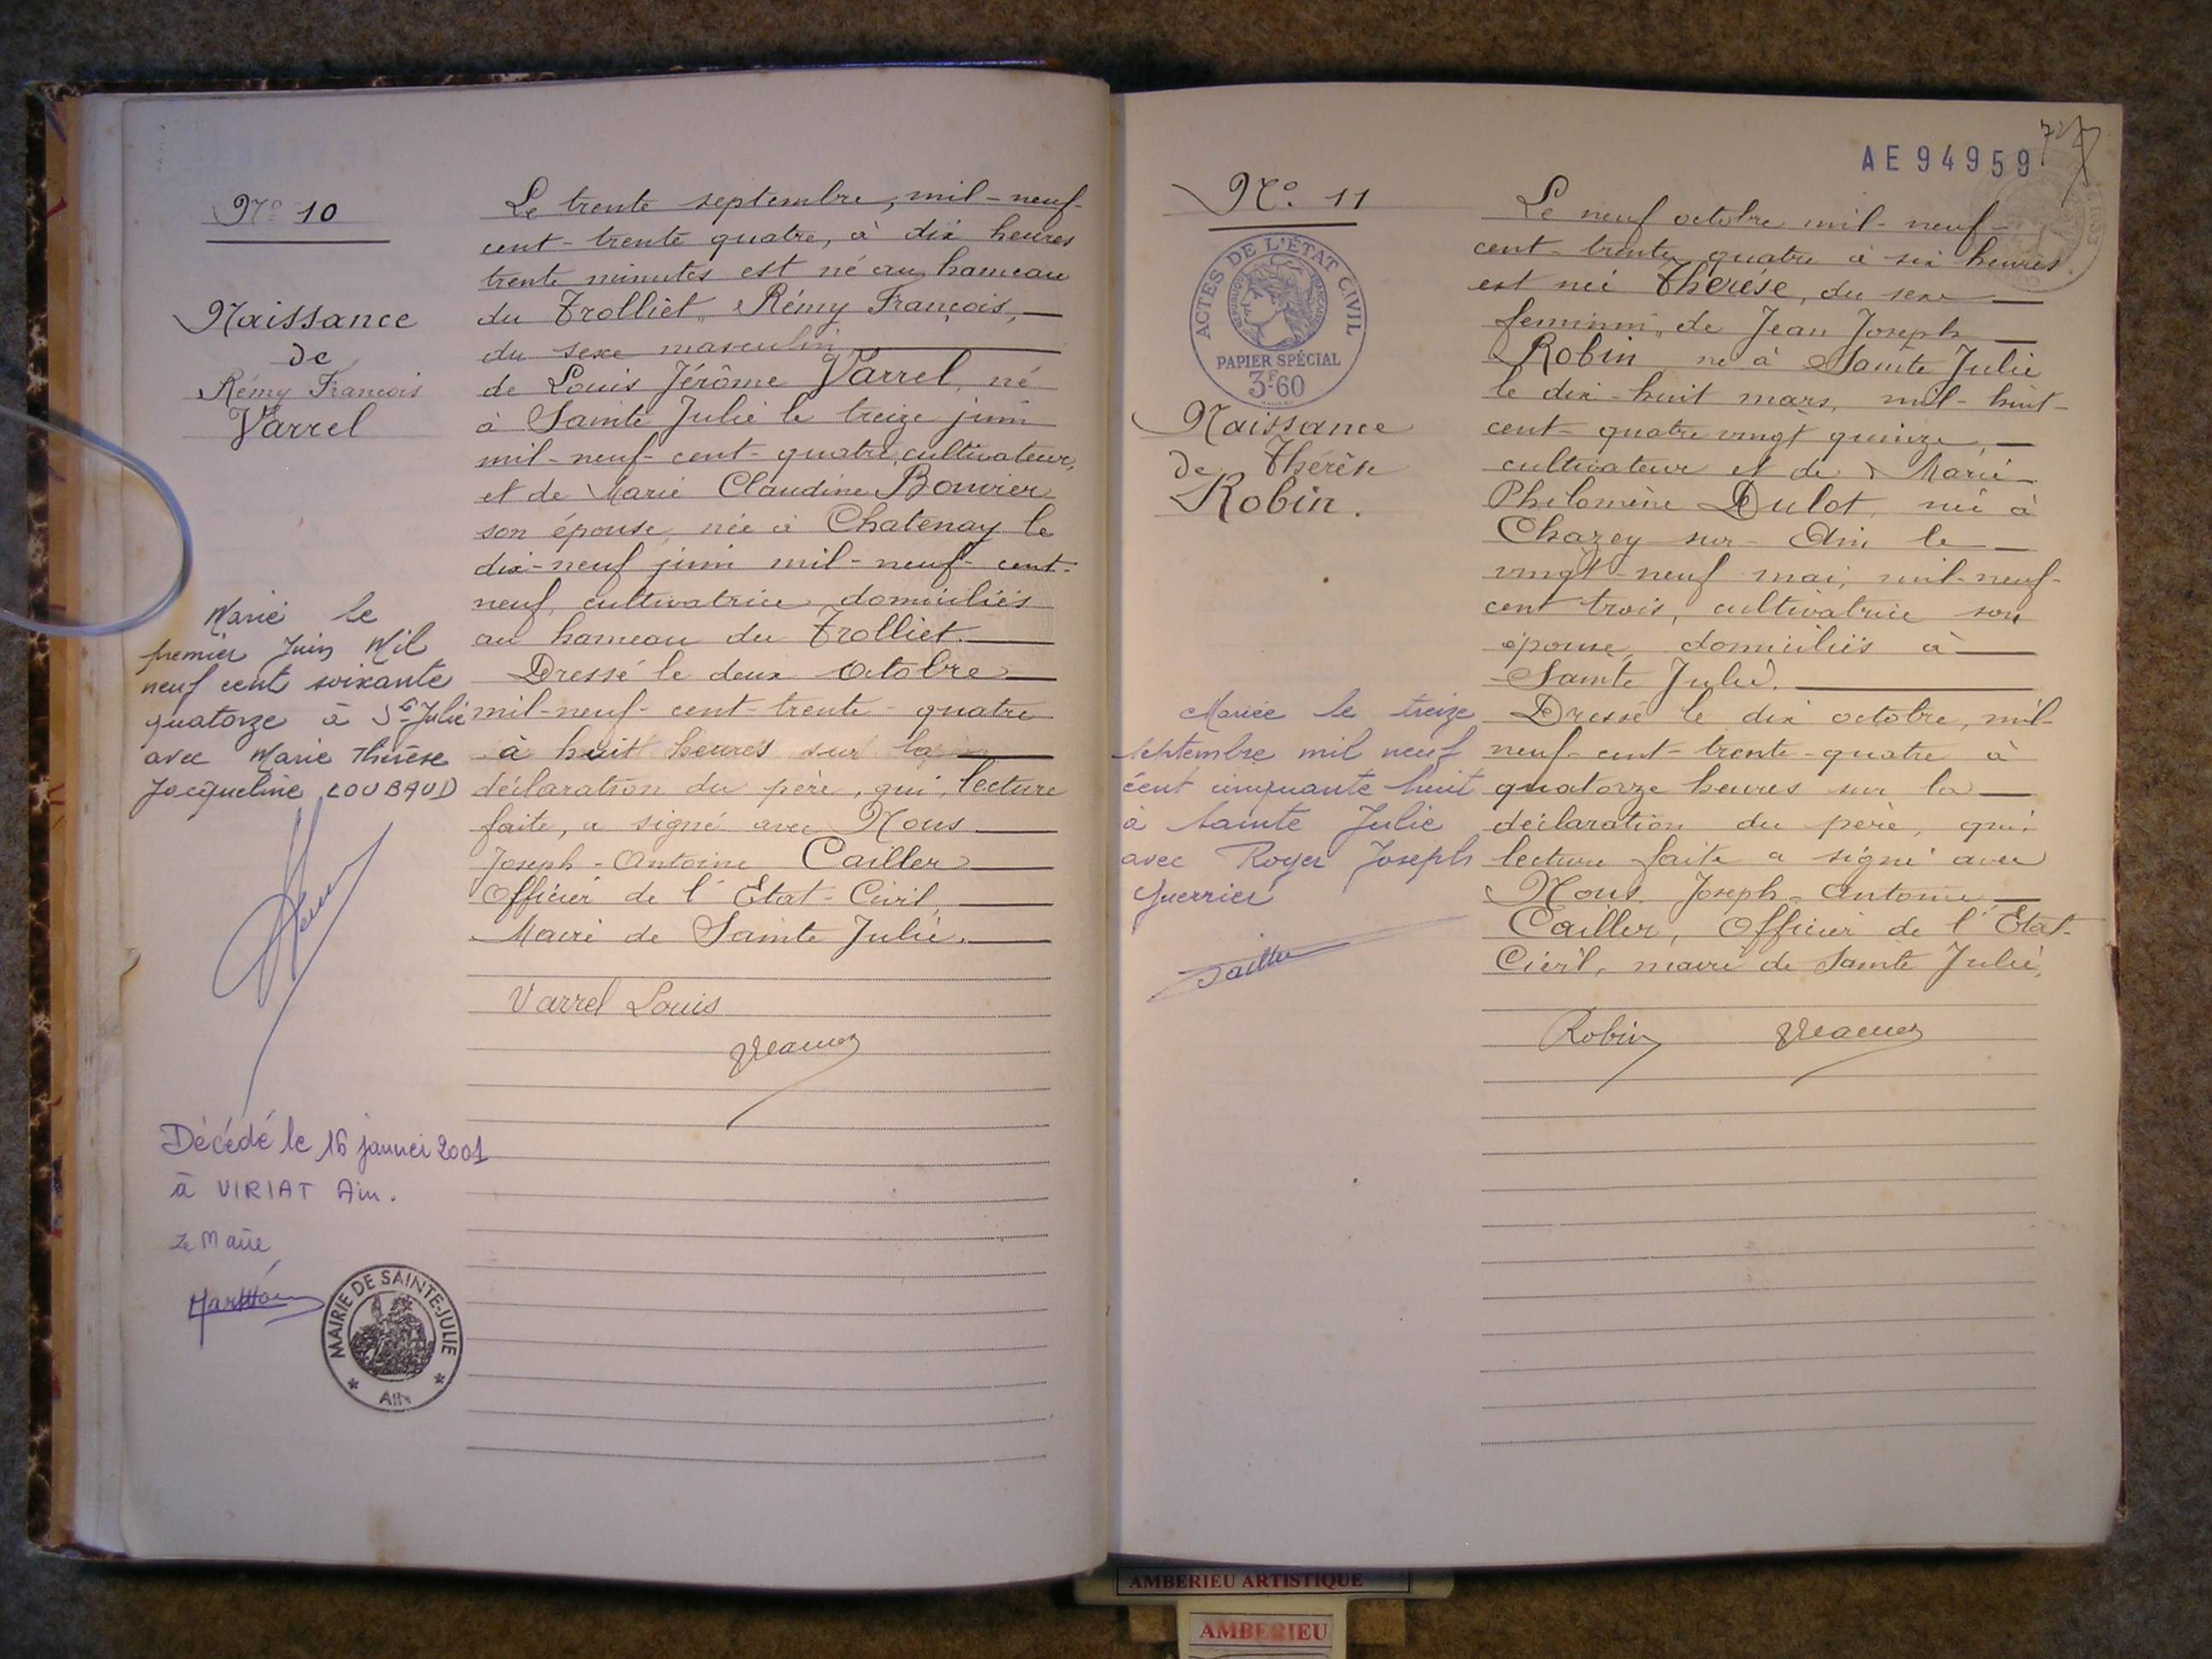 N° 10
Naissance
de
Rémy François
Varrel
Le trente septembre, mil-neuf-
cent-trente quatre, à dix heures
trente minutes est né au hameau
du Trolliet, Rémy François,
du sexe masculin
de Louis Jérôme Varrel, né
à Sainte Julie le treize juin
mil-neuf-cent-quatre, cultivateur,
et de Marie Claudine Bouvier
son épouse, née à Chatenay le
dix-neuf juin mil-neuf-cent-
neuf, cultivatrice domiciliés
au hameau du Trolliet.
Dressé le deux Octobre
mil-neuf-cent-trente-quatre
à huit heures sur la
déclaration du père, qui, lecture
faite, a signé avec Nous
Joseph-Antoine Cailler
Officier de l'Etat-Civil,
Maire de Sainte Julie.
Varrel Louis
Marié le
premier Juin Mil
neuf cent soixante
quatorze à Ste Julie
avec Marie Thérèse
Jacqueline LOUBAUD
Décédé le 16 janvier 2001
à VIRIAT Ain.
Le Maire
MAIRIE DE SAINTE-JULIE
* AIN *
AE94959
N° 11
ACTES DE L'ÉTAT CIVIL
RÉPUBLIQUE FRANÇAISE
PAPIER SPÉCIAL
3F60
Naissance
de Thérèse
Robin.
Le neuf octobre mil-neuf-
cent-trente quatre à six heures
est née Thérèse, du sexe
feminin, de Jean Joseph
Robin né à Sainte Julie
le dix-huit mars, mil-huit-
cent-quatre vingt quinze,
cultivateur et de Marie
Philomène Dulot, née à
Chazey sur-Ain le
vingt-neuf mai, mil-neuf-
cent trois, cultivatrice son
épouse, domiciliés à
Sainte Julie.
Dressé le dix octobre, mil-
neuf-cent-trente-quatre à
quatorze heures sur la
déclaration du père, qui
lecture faite a signé avec
Nous Joseph-Antoine
Cailler, Officier de l'Etat-
Civil, maire de Sainte Julie,
Robin
Mariée le treize
septembre mil neuf
cent cinquante huit
à Sainte Julie
avec Roger Joseph
Guerrier
AMBERIEU ARTISTIQUE
AMBERIEU